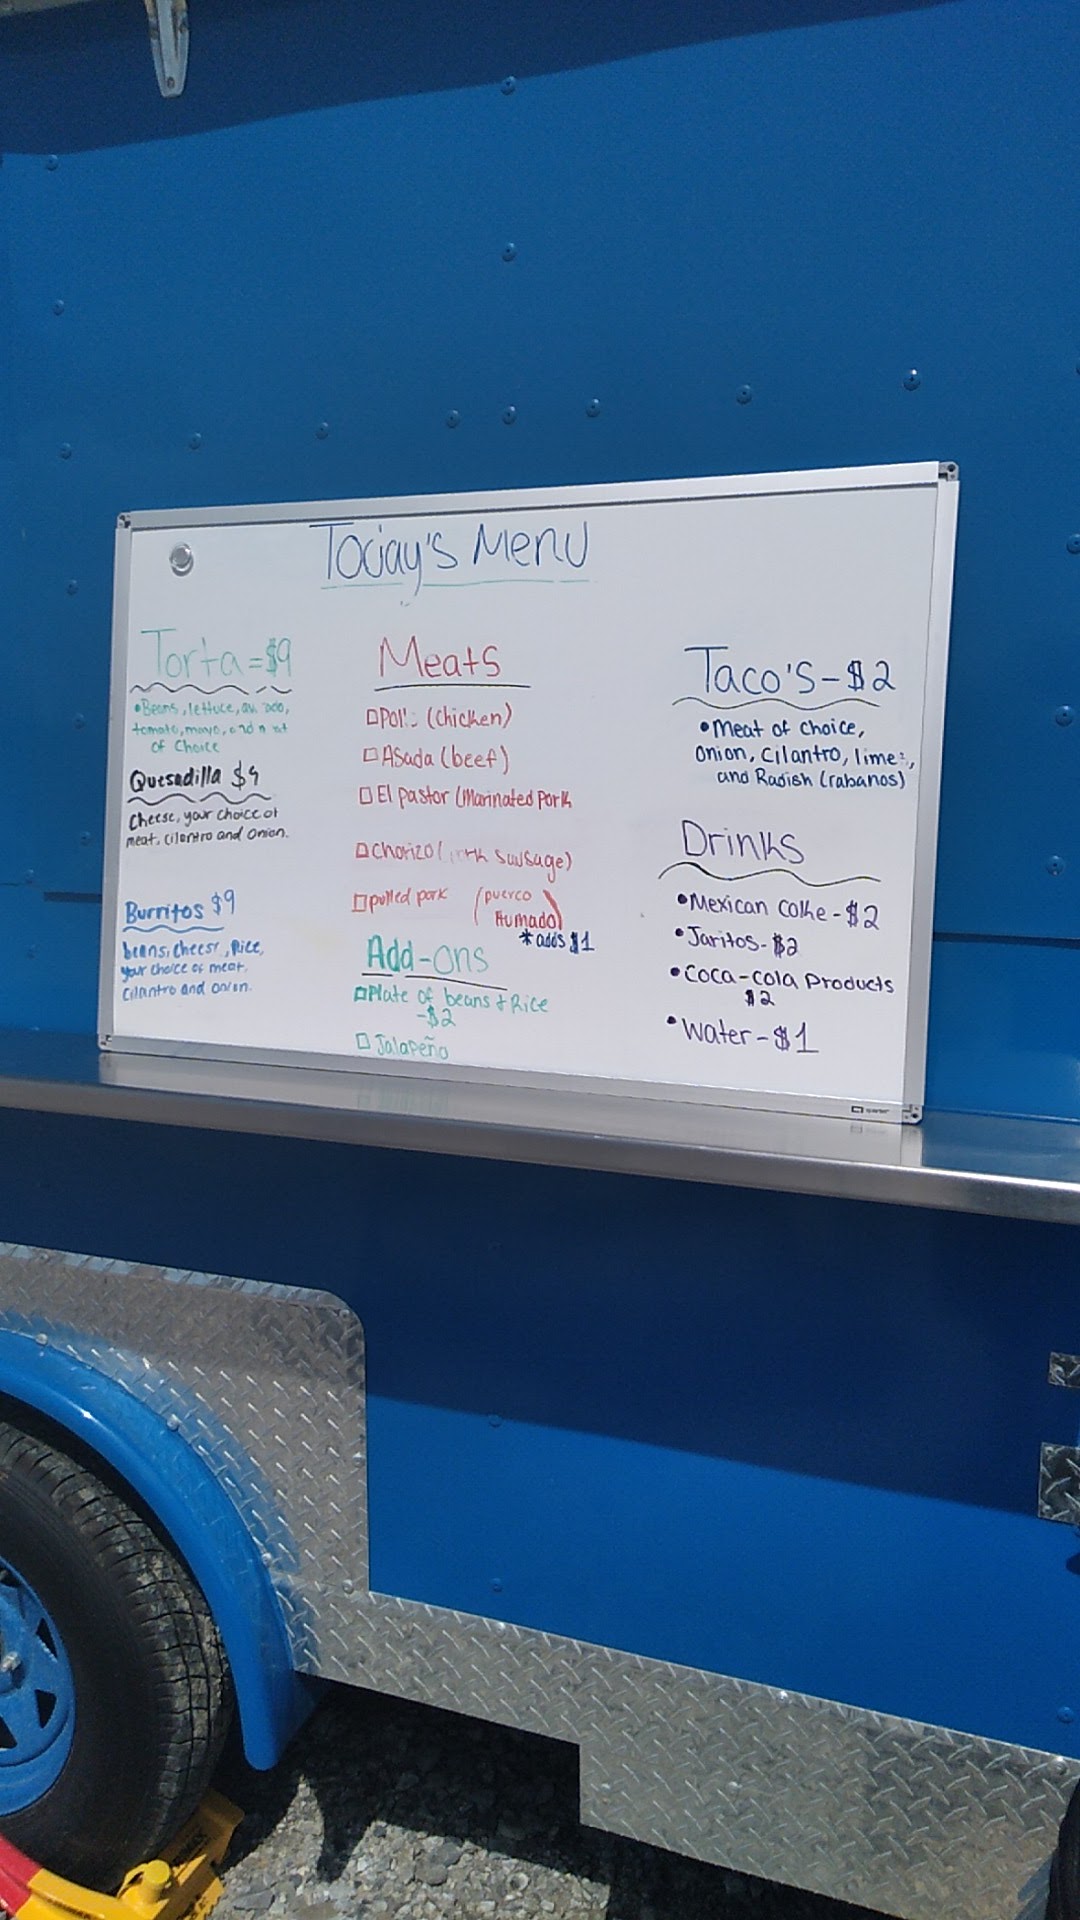 Today's Menu
Torta = $9
•Beans, lettuce,
tomato, mayo, and
of Choice
Quesadilla $9
Cheese, your choice of
meat, cilantro and onion.
Burritos $9
beans, cheese, Rice,
your choice of meat,
cilantro and onion.
Meats
(chicken)
Asada (beef)
El pastor (Marinated Pork
Chorizo ( Sausage)
pulled pork (puerco
Humado)
*adds $1
Add-ons
Plate of beans + Rice
-$2
Jalapeño
Taco's - $2
•Meat of choice,
onion, cilantro, lime,
and Radish (rabanos)
Drinks
•Mexican Colke - $2
•Jaritos - $2
•Coca-cola Products
$2
•Water - $1